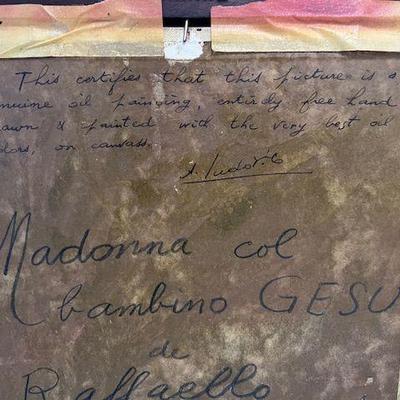 This certifies that this picture is a
enuine oil painting, entirely free hand
rawn & painted with the very best oil
olors, on canvass.
A. Ludovico
Madonna col
bambino GESU
de
Raffaello